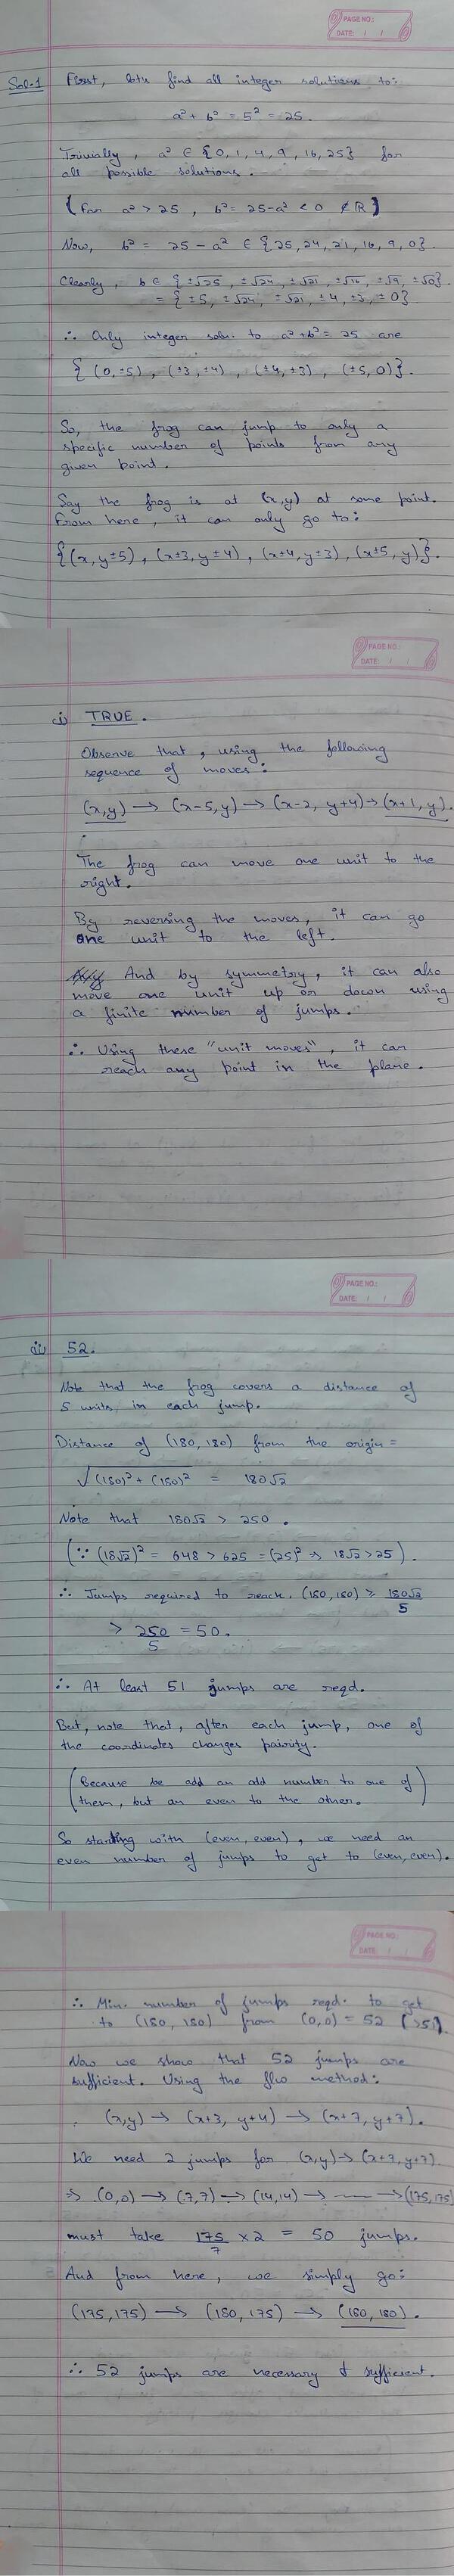 PAGE NO.:
DATE: / /
Sol-1 First, lets find all integer solutions to:
a² + b² = 5² = 25.
Trivially, a² ∈ {0, 1, 4, 9, 16, 25} for
all possible solutions.
(For a² > 25, b² = 25-a² < 0 ∉ R)
Now, b² = 25 - a² ∈ {25, 24, 21, 16, 9, 0}.
Clearly, b ∈ {±√25, ±√24, ±√21, ±√16, ±√9, ±√0}.
= {±5, ±√24, ±√21, ±4, ±3, ±0}
∴ Only integer soln. to a²+b² = 25 are
{(0, ±5), (±3, ±4), (±4, ±3), (±5, 0)}.
So, the frog can jump to only a
specific number of points from any
given point.
Say the frog is at (x,y) at some point.
From here, it can only go to:
{(x, y±5), (x±3, y±4), (x±4, y±3), (x±5, y)}.
PAGE NO.:
DATE: / /
i) TRUE.
Observe that, using the following
sequence of moves:
(x,y) → (x-5,y) → (x-2, y+4) → (x+1, y).
The frog can move one unit to the
right.
By reversing the moves, it can go
one unit to the left.
And by symmetry, it can also
move one unit up or down using
a finite number of jumps.
∴ Using these "unit moves", it can
reach any point in the plane.
PAGE NO.:
DATE: / /
ii) 52.
Note that the frog covers a distance of
5 units in each jump.
Distance of (180, 180) from the origin =
√(180)² + (180)² = 180√2
Note that 180√2 > 250.
(∵ (18√2)² = 648 > 625 = (25)² ⇒ 18√2 > 25).
∴ Jumps required to reach (180, 180) ≥ 180√2/5
> 250/5 = 50.
∴ At least 51 jumps are reqd.
But, note that, after each jump, one of
the coordinates changes pairity.
(Because be add an odd number to one of
them, but an even to the other.)
So starting with (even, even), we need an
even number of jumps to get to (even, even).
PAGE NO.:
DATE: / /
∴ Min. number of jumps reqd. to get
to (180, 180) from (0,0) = 52 (>51).
Now we show that 52 jumps are
sufficient. Using the flw method:
(x,y) → (x+3, y+4) → (x+7, y+7).
We need 2 jumps for (x,y) → (x+7, y+7)
⇒ (0,0) → (7,7) → (14,14) → ---- → (175,175)
must take 175/7 × 2 = 50 jumps.
And from here, we simply go:
(175, 175) → (180, 175) → (180, 180).
∴ 52 jumps are necessary & sufficient.